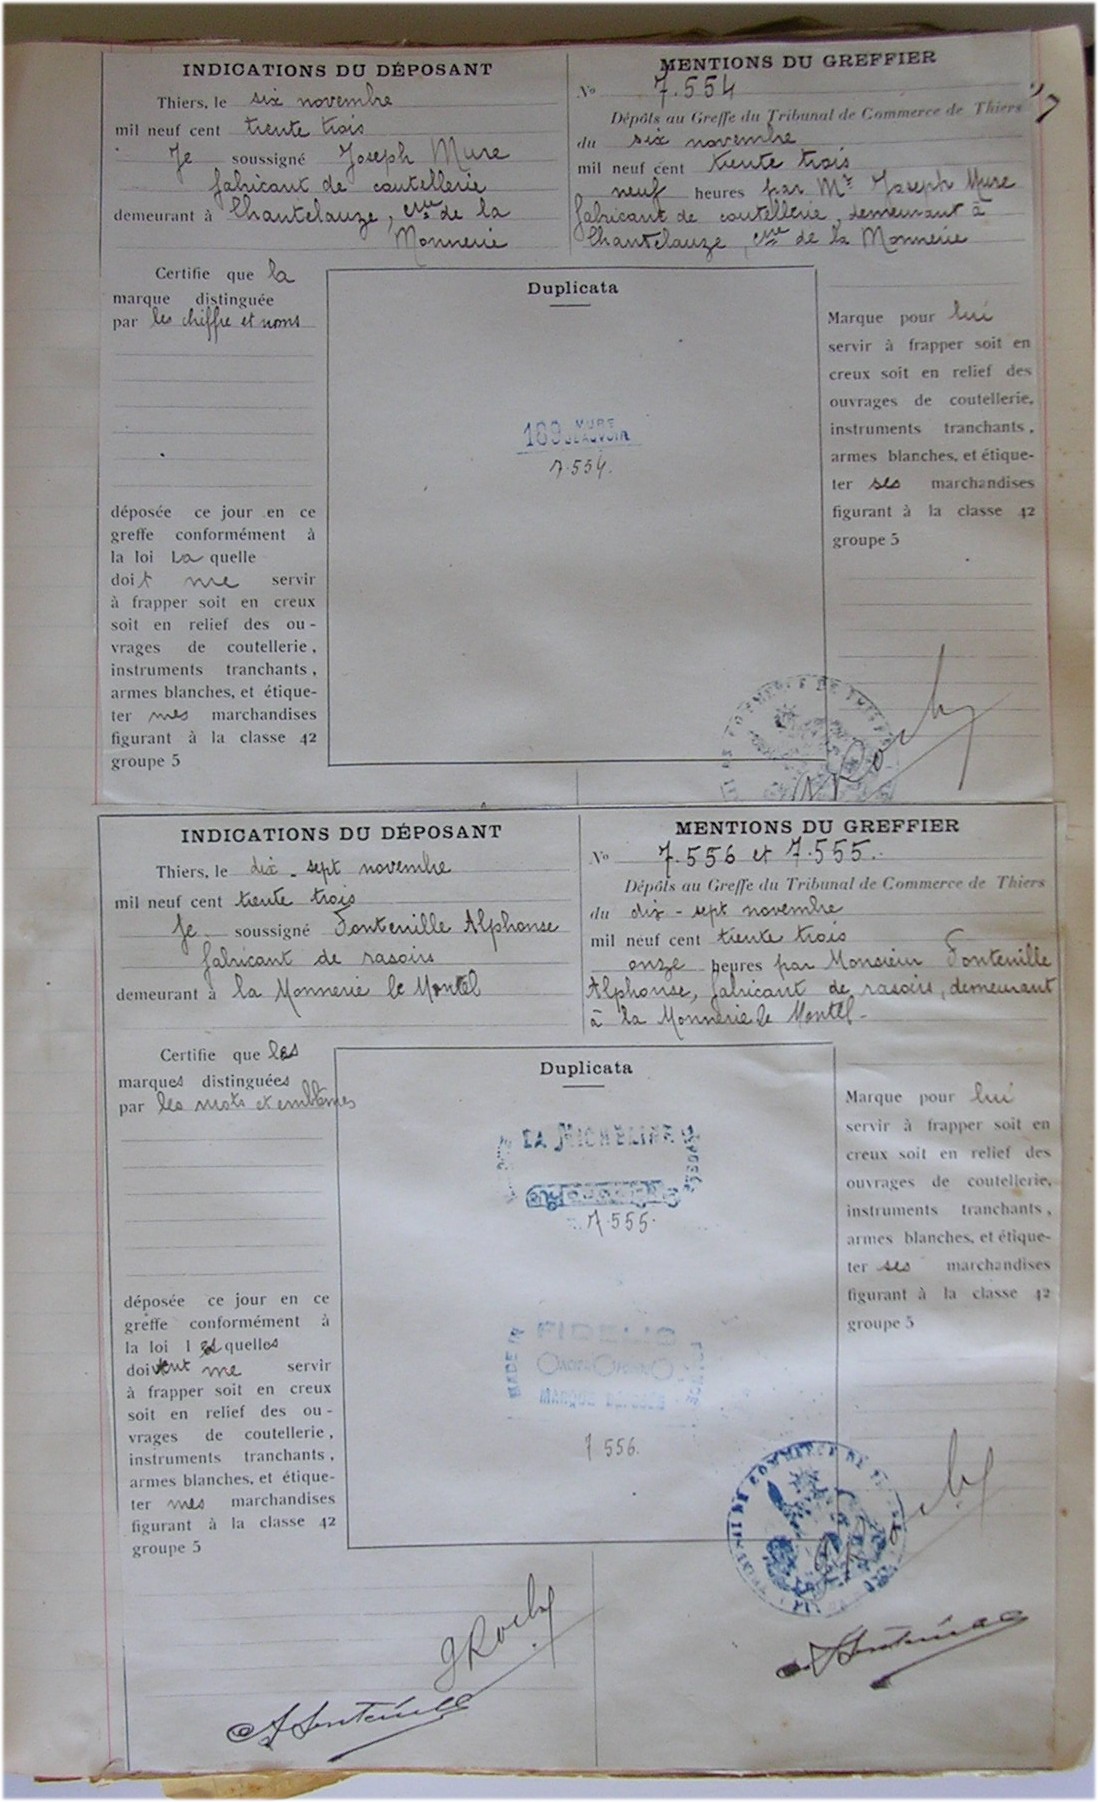 INDICATIONS DU DÉPOSANT
Thiers, le six novembre
mil neuf cent trente trois
Je soussigné Joseph Mure
fabricant de coutellerie
demeurant à Chantelauze, cne de la
Monnerie
Certifie que la
marque distinguée
par les chiffre et noms
déposée ce jour en ce
greffe conformément à
la loi La quelle
doit me servir
à frapper soit en creux
soit en relief des ou-
vrages de coutellerie,
instruments tranchants,
armes blanches, et étique-
ter mes marchandises
figurant à la classe 42
groupe 5
MENTIONS DU GREFFIER
No 7.554
Dépôts au Greffe du Tribunal de Commerce de Thiers
du six novembre
mil neuf cent trente trois
neuf heures par Mr Joseph Mure
fabricant de coutellerie, demeurant à
Chantelauze, cne de la Monnerie
Duplicata
189 MURE
7.554.
Marque pour lui
servir à frapper soit en
creux soit en relief des
ouvrages de coutellerie,
instruments tranchants,
armes blanches, et étique-
ter ses marchandises
figurant à la classe 42
groupe 5
INDICATIONS DU DÉPOSANT
Thiers, le dix-sept novembre
mil neuf cent trente trois
Je soussigné Fontenille Alphonse
fabricant de rasoirs
demeurant à la Monnerie le Montel
Certifie que les
marques distinguées
par les mots et emblèmes
déposée ce jour en ce
greffe conformément à
la loi lesquelles
doivent me servir
à frapper soit en creux
soit en relief des ou-
vrages de coutellerie,
instruments tranchants,
armes blanches, et étique-
ter mes marchandises
figurant à la classe 42
groupe 5
MENTIONS DU GREFFIER
No 7.556 et 7.555.
Dépôts au Greffe du Tribunal de Commerce de Thiers
du dix-sept novembre
mil neuf cent trente trois
onze heures par Monsieur Fontenille
Alphonse, fabricant de rasoirs, demeurant
à la Monnerie le Montel.
Duplicata
LA MICHELINE
7.555.
FIDELIO
MADE IN FRANCE
MARQUE DEPOSÉE
7 556.
Marque pour lui
servir à frapper soit en
creux soit en relief des
ouvrages de coutellerie,
instruments tranchants,
armes blanches, et étique-
ter ses marchandises
figurant à la classe 42
groupe 5